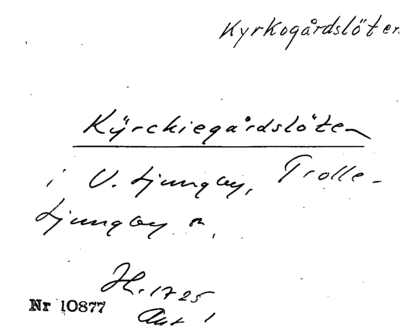 Kyrkogårdslöten
Kÿrckiegårdslöten
i V. Ljungby, Trolle-
Ljungby sn,
H. 1725
Akt 1
Nr 10877